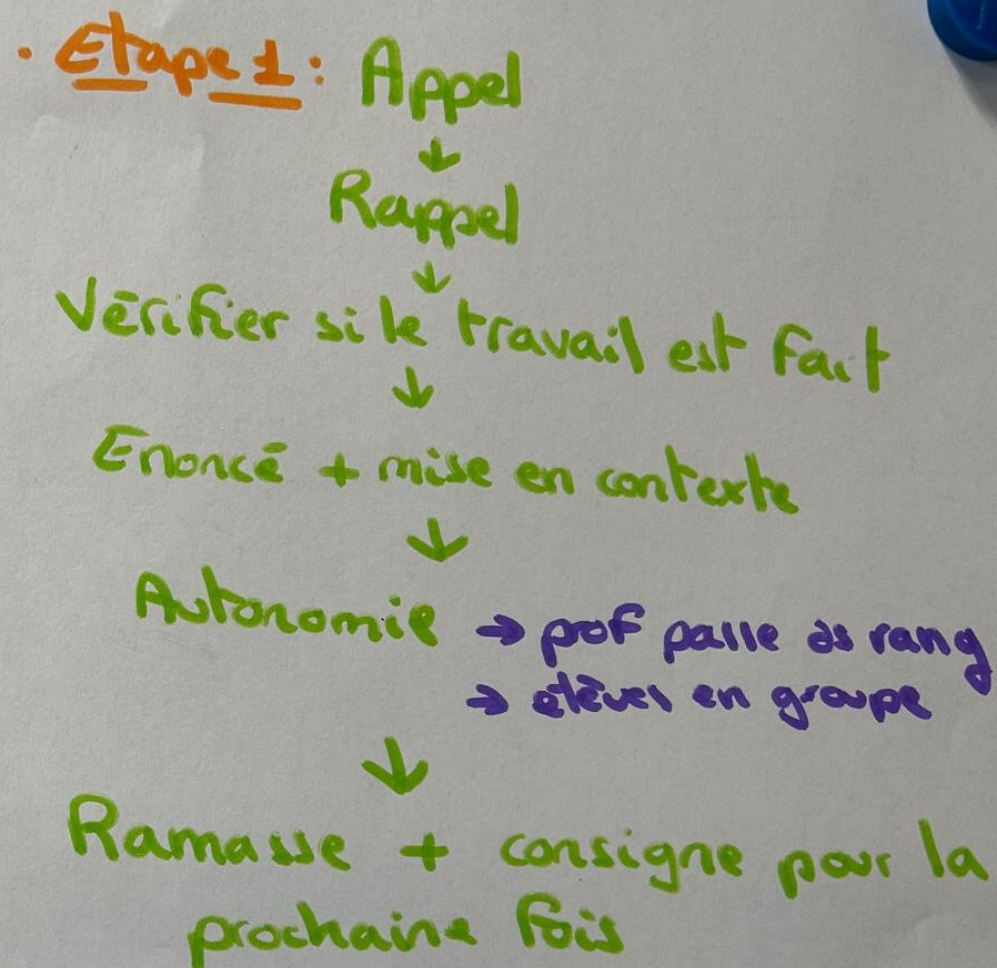 . Etape 1 : Appel
↓
Rappel
↓
Vérifier si le travail est fait
↓
Enoncé + mise en contexte
↓
Autonomie → prof passe ds rang
→ élèves en groupe
↓
Ramasse + consigne pour la
prochaine fois